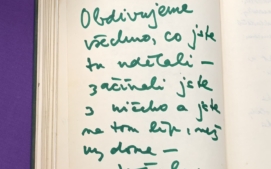 Obdivujeme
všechno, co jste
tu udělali –
začínali jste
z ničeho a jste
na tom líp, než
my doma –